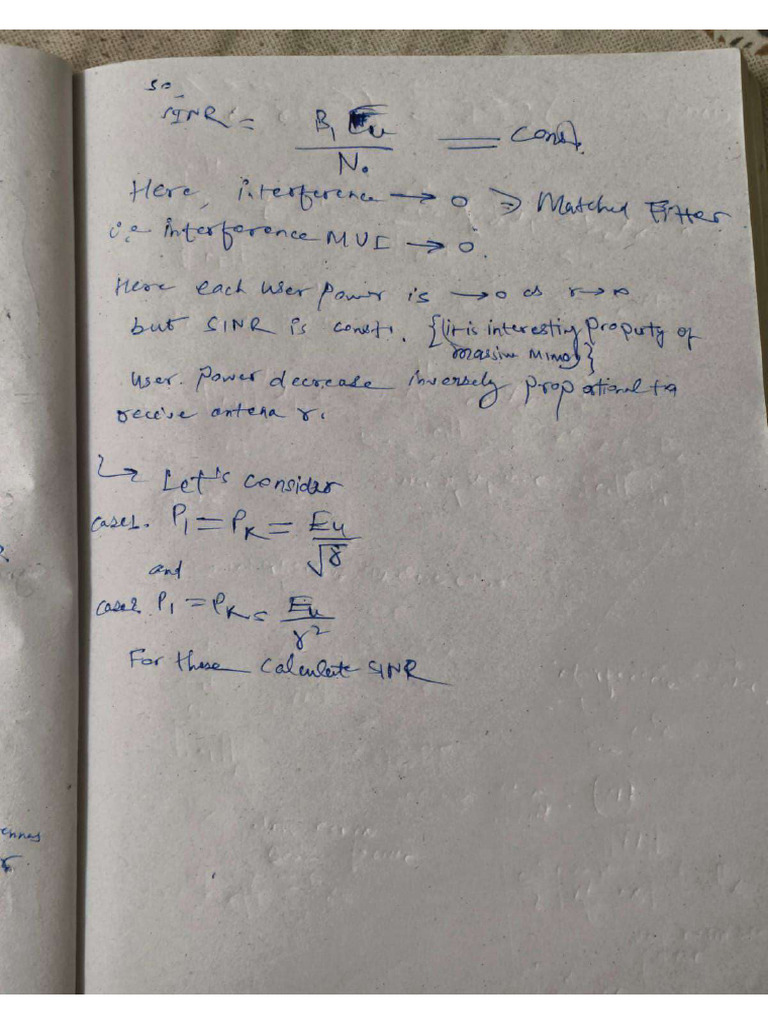 so
SINR = β₁ Eu / N₀ = const.
Here, interference → 0 ⇒ Matched Filter
i.e interference MUI → 0.
Here each user power is → 0 as r → ∞
but SINR is const. {it is interesting property of
massive MIMO}
user. power decrease inversely proportional to
receive antena r.
↳ Let's consider
case1. P₁ = Pₖ = Eu / √r
and
case2. P₁ = Pₖ = Eu / r²
For these calculate SINR
ennas
r.